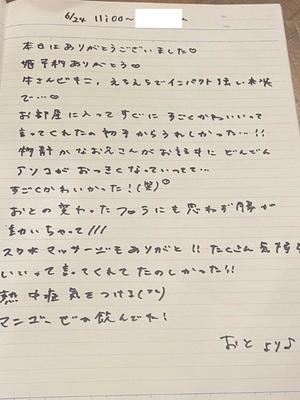 6/24 11:00~
本日はありがとうございました♡
ありがとう♡
牛さんビキニ、えちえちでインパクト強い水状
で…♡
お部屋に入ってすぐに すごくかわいいって
言ってくれたの 初手からうれしかった…!!
物静かなお兄さんがお話中に どんどん
アソコがおっきくなっていってて…
すごくかわいかった!(笑)
おとの変わったフロラにも思わず腰が
動いちゃって///
マッサージもありがと!! たくさん気持ち
いいって言ってくれて たのしかった!!
熱中症 気をつける
マンゴー ぜったい飲んでね!
おと より♪